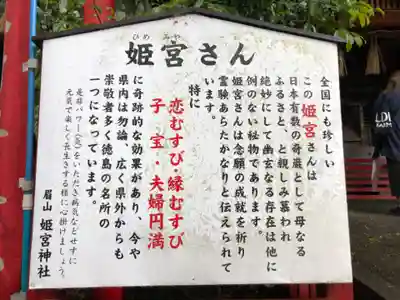 ひめ みや
姫宮さん
全国にも珍しい
この姫宮さんは
日本有数の奇巌として母なる
ふるさと、と親しみ慕われ
絶妙にして幽玄なる存在は他に
例のない秘物であります。
姫宮さんは念願の成就を祈り
霊験あらたかなりと伝えられて
います。
特に
恋むすび・縁むすび
子宝・夫婦円満
に奇跡的な効果があり、今や
県内は勿論、広く県外からも
崇敬者多く徳島の名所の
一つになっています。
是非パワー(気)をいただき病気などせずに
元気で楽しく長生きする様に心掛けましょう。
眉山 姫宮神社
LDH